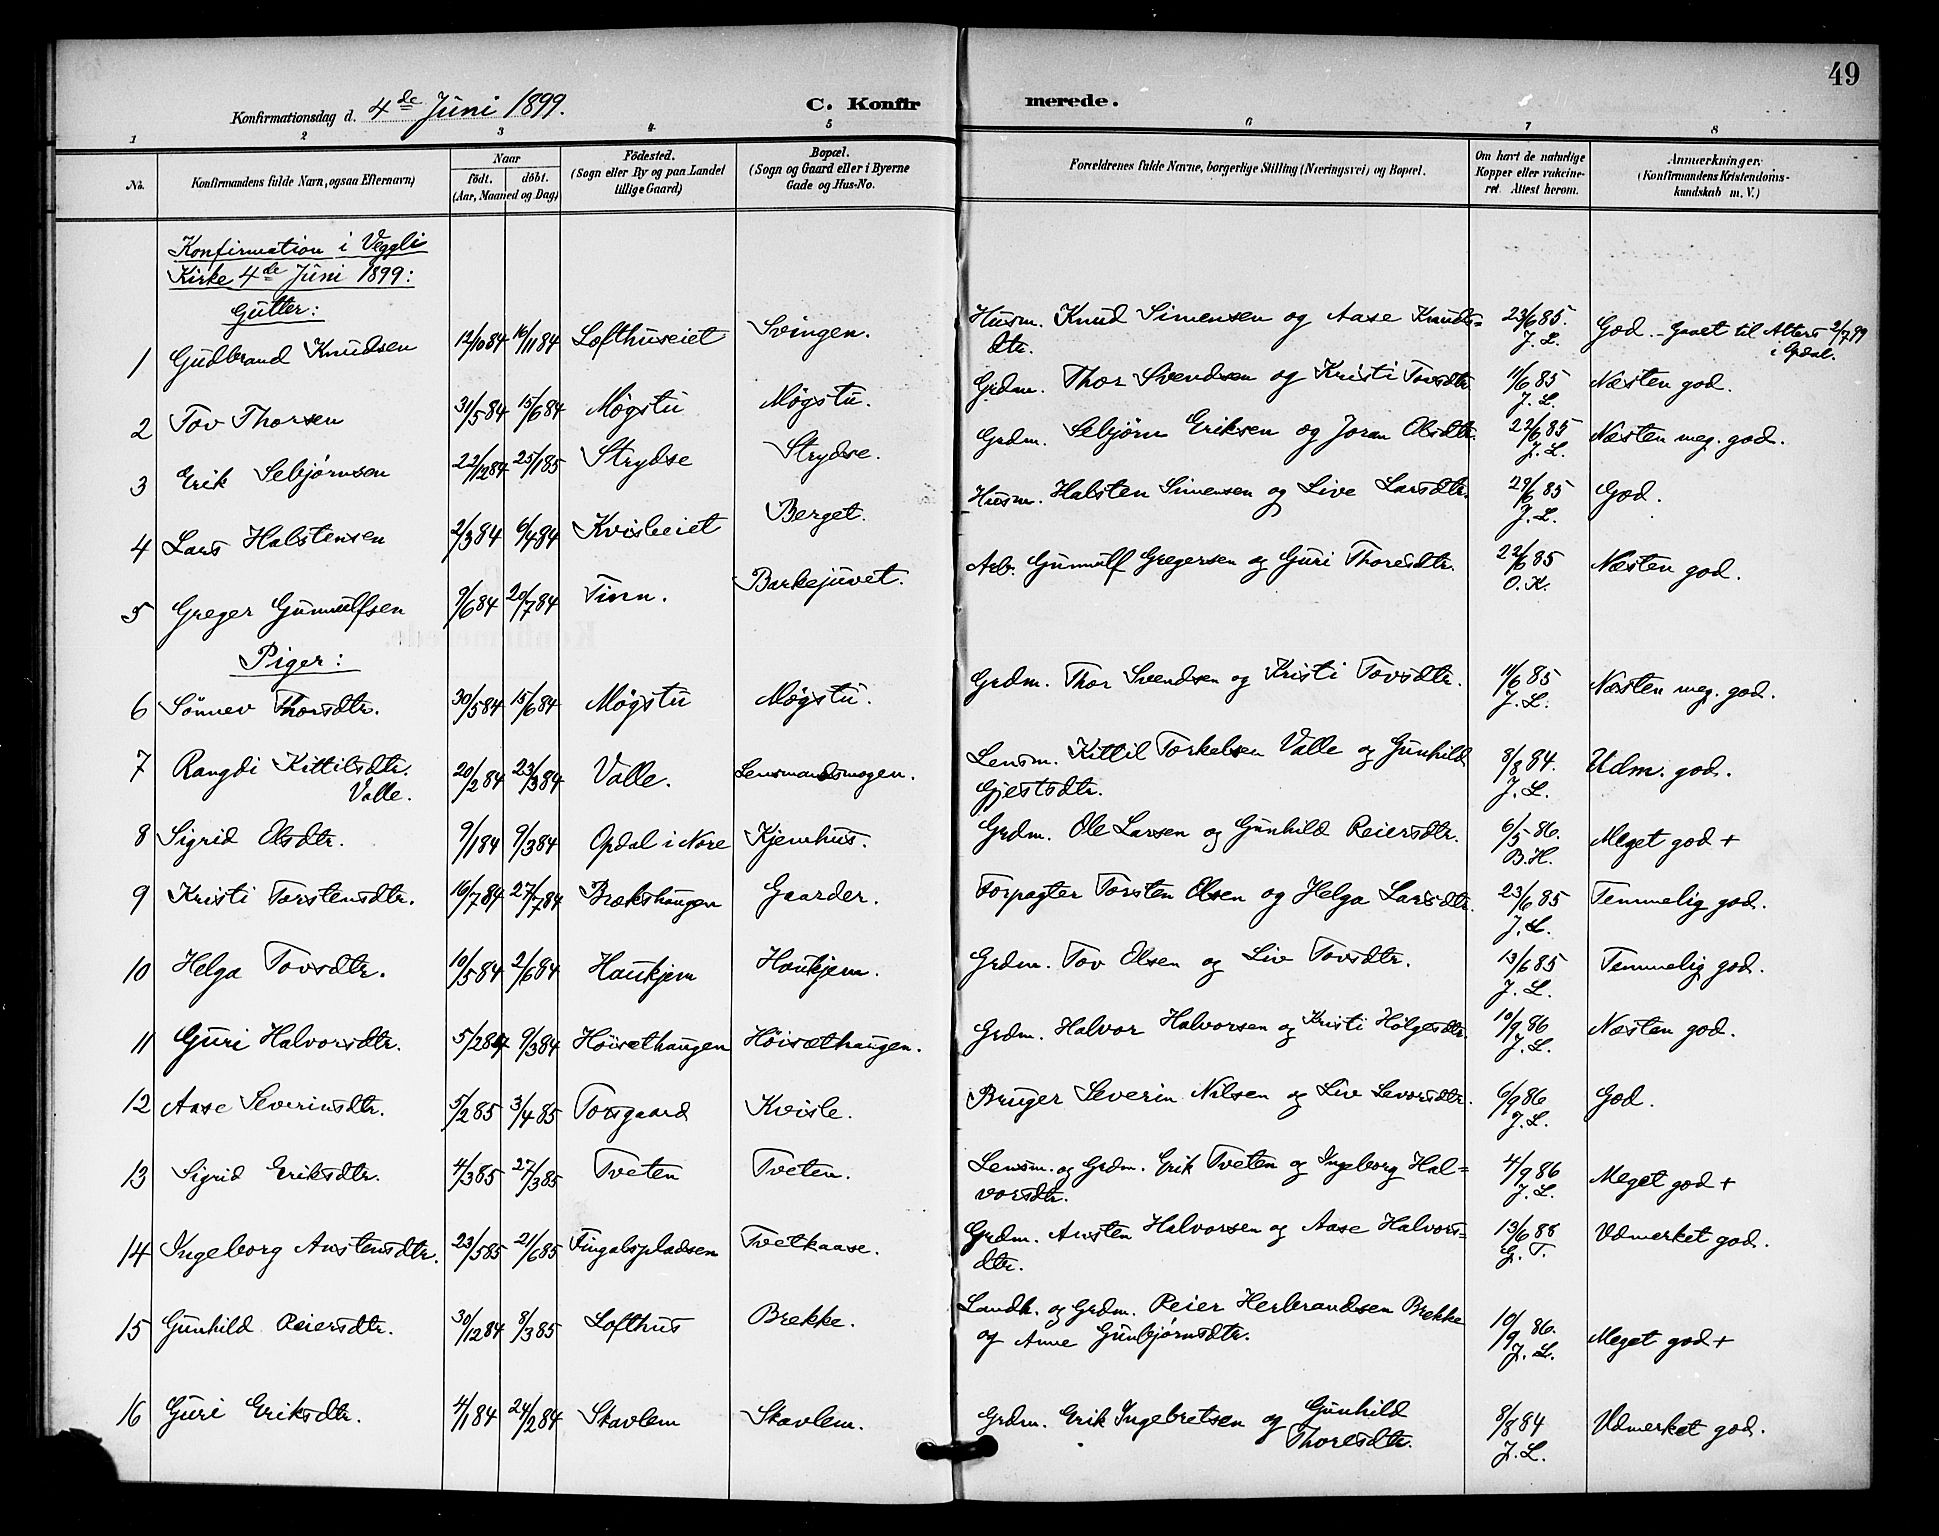 49
Konfirmationsdag d. 4de Juni 1899.
C. Konfir
merede.
1 2 3 4 5 6 7 8
No. Konfirmandens fulde Navn, ogsaa Efternavn) Naar födt. döbt. (Aar, Maaned og Dag) Födested. (Sogn eller By og paa Landet tillige Gaard) Bopæl. (Sogn og Gaard eller i Byerne Gade og Hus-No. Forældrenes fulde Navne, borgerlige Stilling (Næringsvei) og Bopæl. Om havt de naturlige Kopper eller vakcineret. Attest herom. Anmærkninger. (Konfirmandens Kristendomskundskab m. V.)
Konfirmation i Veggli
Kirke 4de Juni 1899:
Gutter:
1 Gudbrand Knudsen 12/10 84 16/11 84 Lofthuseiet Svingen. Husm. Knud Simensen og Aase Knuds=
dtr. 23/6 85. J. L. God. - Gaaet til Alters 2/7 99
i Opdal.
2 Tov Thorsen 31/5 84 15/6 84 Møgstu Møgstu. Grdm. Thor Svendsen og Kristi Tovsdtr. 11/6 85 J. L. Næsten god.
3 Erik Sebjørnsen 22/12 84 25/1 85 Strydse Strydse. Grdm. Sebjørn Eriksen og Joran Olsdtr. 22/6 85 J. L. Næsten meg. god.
4 Lars Halstensen 2/3 84 6/4 84 Kvisleeiet Berget. Husm. Halsten Simensen og Live Larsdtr. 29/6 85 J. L. God.
5 Greger Gunnulfsen 9/6 84 20/7 84 Tinn. Barkejuvet. Arb. Gunnulf Gregersen og Guri Thoresdtr. 22/6 85 O. K. Næsten god.
Piger:
6 Sønnev Thorsdtr. 30/5 84 15/6 84 Møgstu Møgstu. Grdm. Thor Svendsen og Kristi Tovsdtr. 11/6 85 J. L. Næsten meg. god.
7 Rangdi Kittilsdtr.
Valle. 20/2 84 23/3 84 Valle. Lensmandsmogen. Lensm. Kittil Torkelsen Valle og Gunhild
Gjestsdtr. 8/8 84. J. L. Udm. god.
8 Sigrid Olsdtr. 9/1 84 9/3 84 Opdal i Nore Kjemhus. Grdm. Ole Larsen og Gunhild Reiersdtr. 6/5 86. B. H. Meget god +
9 Kristi Torstensdtr. 16/7 84 27/7 84 Brækshaugen Gaarder. Forpagter Torsten Olsen og Helga Larsdtr. 23/6 85 J. L. Temmelig god.
10 Helga Tovsdtr. 10/5 84 2/6 84 Haukjem Haukjem. Grdm. Tov Olsen og Liv Tovsdtr. 13/6 85 J. L. Temmelig god.
11 Guri Halvorsdtr. 5/2 84 9/3 84 Höisæthaugen Höisæthaugen. Grdm. Halvor Halvorsen og Kristi Holgesdtr. 10/9 86 J. L. Næsten god.
12 Aase Severinsdtr. 5/2 85 3/4 85 Torsgaard Kvisle. Bruger Severin Nilsen og Liv Levorsdtr. 6/9 86 J. L. God.
13 Sigrid Eriksdtr. 4/3 85 27/3 85 Tveten Tveten. Lensm. og Grdm. Erik Tveten og Ingeborg Hal=
vorsdtr. 4/9 86 J. L. Meget god +
14 Ingeborg Anstensdtr. 23/5 85 21/6 85 Fingalspladsen Tvetkaase. Grdm. Ansten Halvorsen og Aase Halvors=
dtr. 13/6 88 G. T. Udmerket god.
15 Gunhild Reiersdtr. 30/12 84 8/3 85 Lofthus Brekke. Landh. og Grdm. Reier Herbrandsen Brekke
og Anne Gunbjørnsdtr. 10/9 86. J. L. Meget god +
16 Guri Eriksdtr. 4/1 84 24/2 84 Skavlem Skavlem. Grdm. Erik Ingebretsen og Gunhild
Thoresdtr. 8/8 84 J. L. Udmerket god.